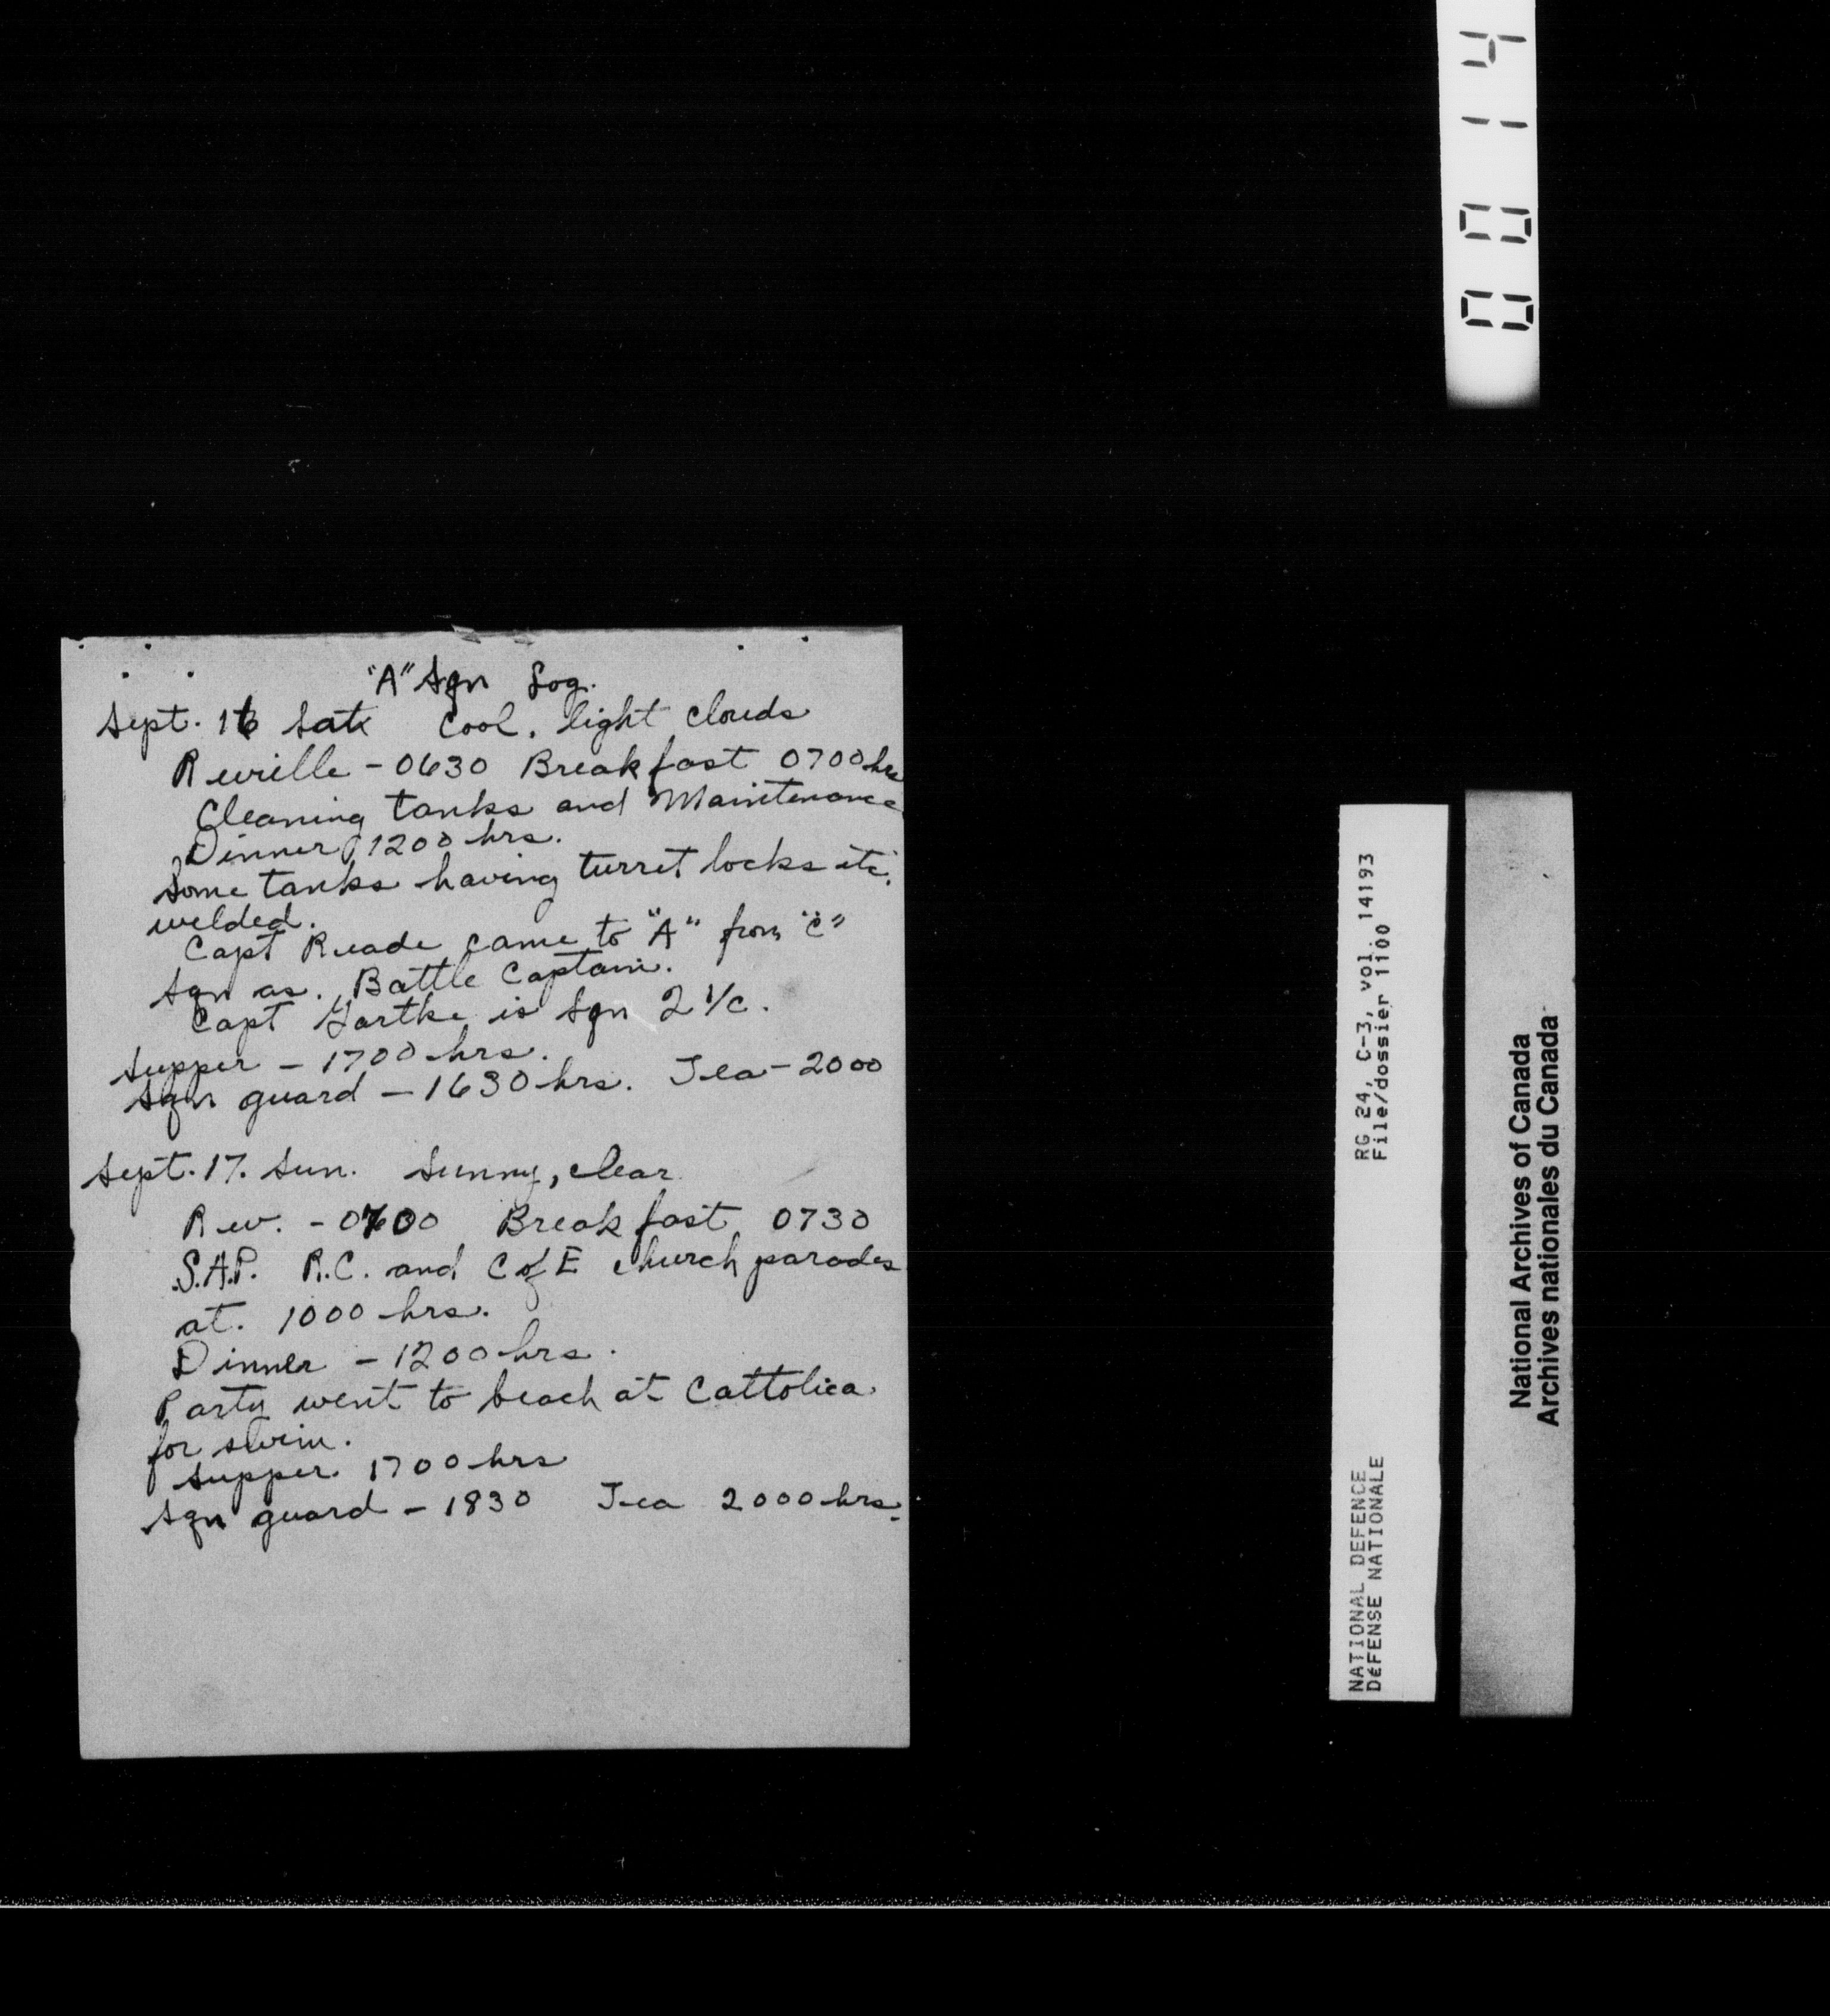 "A" Sqn Log.
Sept. 16 Sat Cool, light clouds
Reveille - 0630 Breakfast 0700 hrs
Cleaning tanks and Maintenance
Dinner 1200 hrs.
Some tanks having turret locks etc.
welded.
Capt Reade came to "A" from "C"
Sqn as. Battle Captain.
Capt Gartke is Sqn 2 i/c.
Supper - 1700 hrs.
Sqn guard - 1630 hrs. Tea - 2000
Sept. 17. Sun. Sunny, clear
Rev. - 0700 Breakfast 0730
S.A.P. R.C. and C of E church parades
at. 1000 hrs.
Dinner - 1200 hrs.
Party went to beach at Cattolica
for swim.
Supper. 1700 hrs
Sqn guard - 1830 Tea 2000 hrs.
0014
RG 24, C-3, vol. 14193
File/dossier 1100
NATIONAL DEFENCE
DéFENSE NATIONALE
National Archives of Canada
Archives nationales du Canada